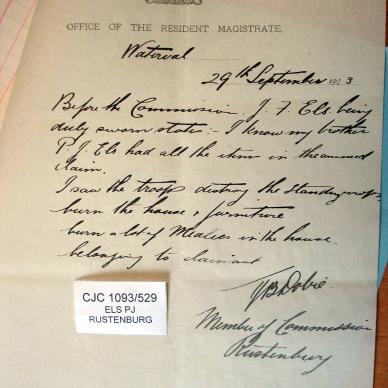 OFFICE OF THE RESIDENT MAGISTRATE,
Waterval
29th September 1903
Before the Commission J. F. Els being
duly sworn states:- I know my brother
P. J. Els had all the item in the annexed
claim.
I saw the troops destroy the standing crops
burn the house & furniture
burn a lot of Mealies in the house
belonging to claimant
CJC 1093/529
ELS PJ
RUSTENBURG
Dobie
Member of Commission
Rustenburg